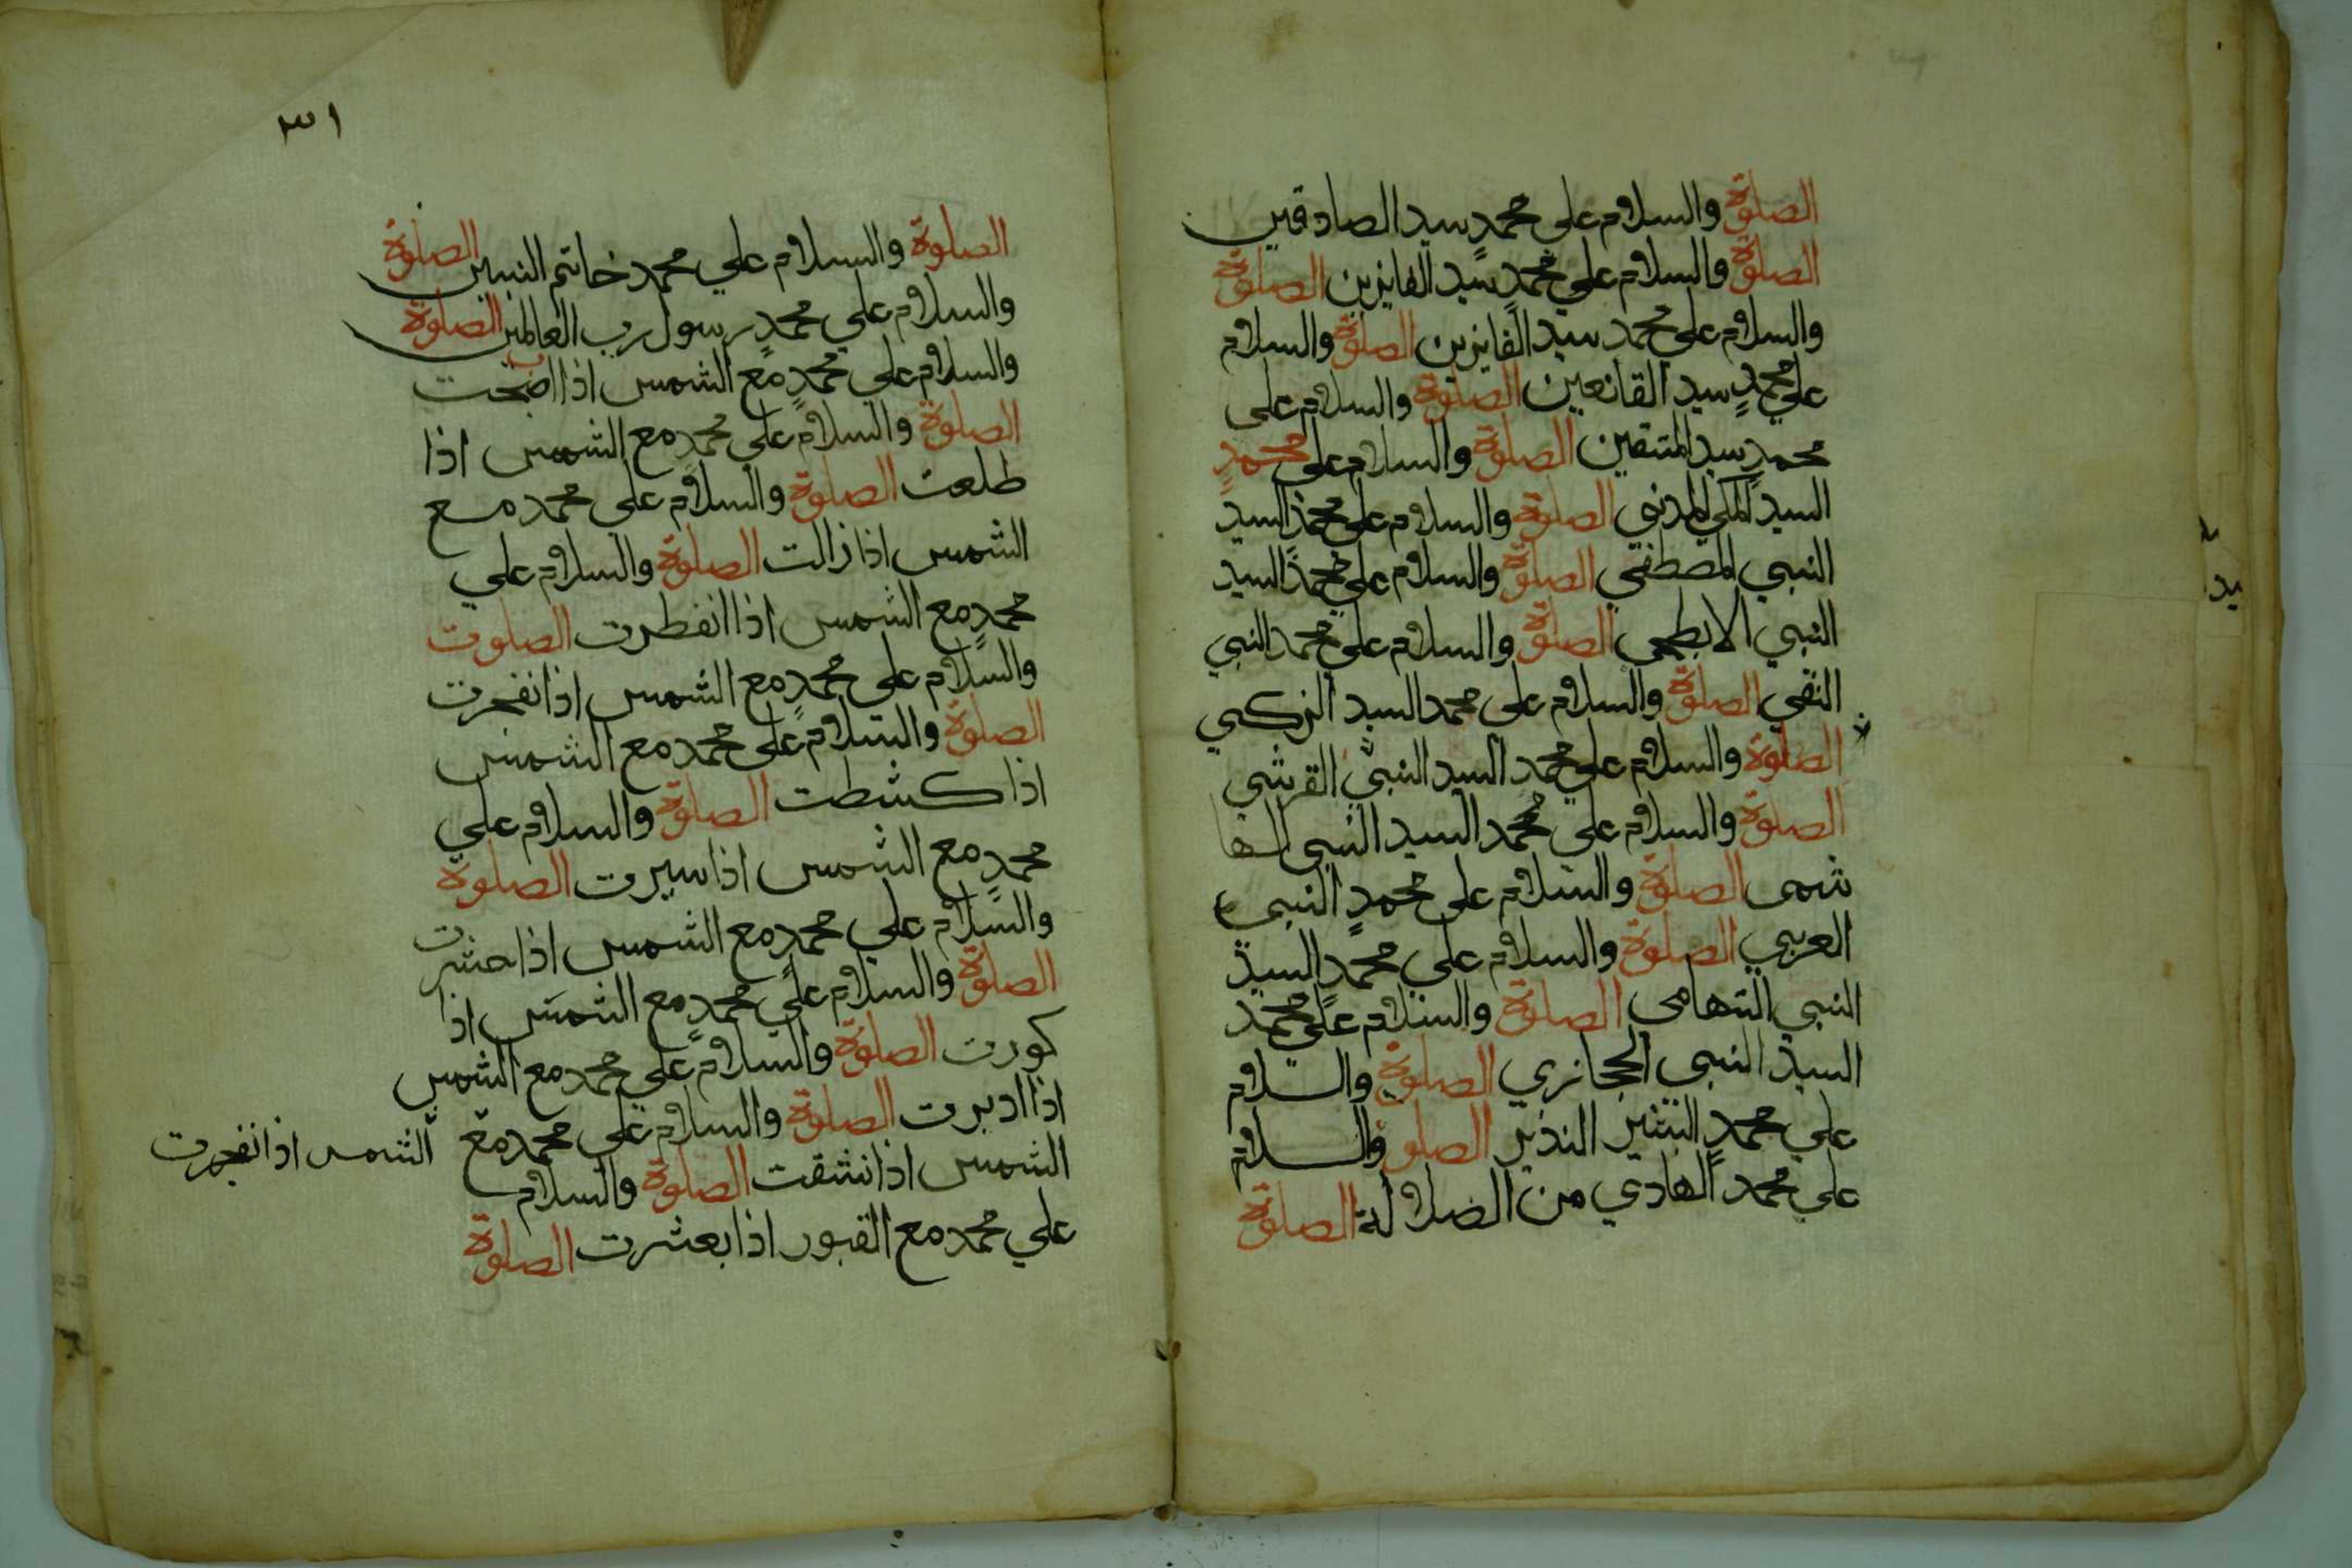 الصلوة والسلام على محمد سيد الصادقين
الصلوة والسلام علي محمد سيد الفايزين الصلوة
والسلام على محمد سيد الفايزين الصلوة والسلام
علي محمد سيد القانعين الصلوة والسلام على
محمد سيد المتقين الصلوة والسلام على محمد
السيد المكي المدني الصلوة والسلام على محمد السيد
النبي المصطفى الصلوة والسلام على محمد السيد
النبي الابطحي الصلوة والسلام علي محمد النبي
التقي الصلوة والسلام على محمد السيد الزكي
الصلوة والسلام علي محمد السيد النبي القرشي
الصلوة والسلام علي محمد السيد النبي الها
شمى الصلوة والسلام على محمد النبي
العربي الصلوة والسلام علي محمد السيد
النبي التهامى الصلوة والسلام على محمد
السيد النبي الحجازي الصلوة والسلام
علي محمد البشير النذير الصلوة والسلام
علي محمد الهادي من الضلالة الصلوة
٣١
الصلوة والسلام علي محمد خاتم النبيين الصلوة
والسلام علي محمد رسول رب العالمين الصلوة
والسلام علي محمد مع الشمس اذا اضحت
الصلوة والسلام علي محمد مع الشمس اذا
طلعت الصلوة والسلام علي محمد مع
الشمس اذا زالت الصلوة والسلام علي
محمد مع الشمس اذا انفطرت الصلوت
والسلام علي محمد مع الشمس اذا نفجرت
الصلوة والسلام على محمد مع الشمس
اذا كشطت الصلوة والسلام علي
محمد مع الشمس اذا سيرت الصلوة
والسلام علي محمد مع الشمس اذا حشرت
الصلوة والسلام علي محمد مع الشمس اذا
كورت الصلوة والسلام علي محمد مع الشمس
اذا ادبرت الصلوة والسلام علي محمد مع
الشمس اذا نفجرت
الشمس اذا نشقت الصلوة والسلام
علي محمد مع القبور اذا بعثرت الصلوة